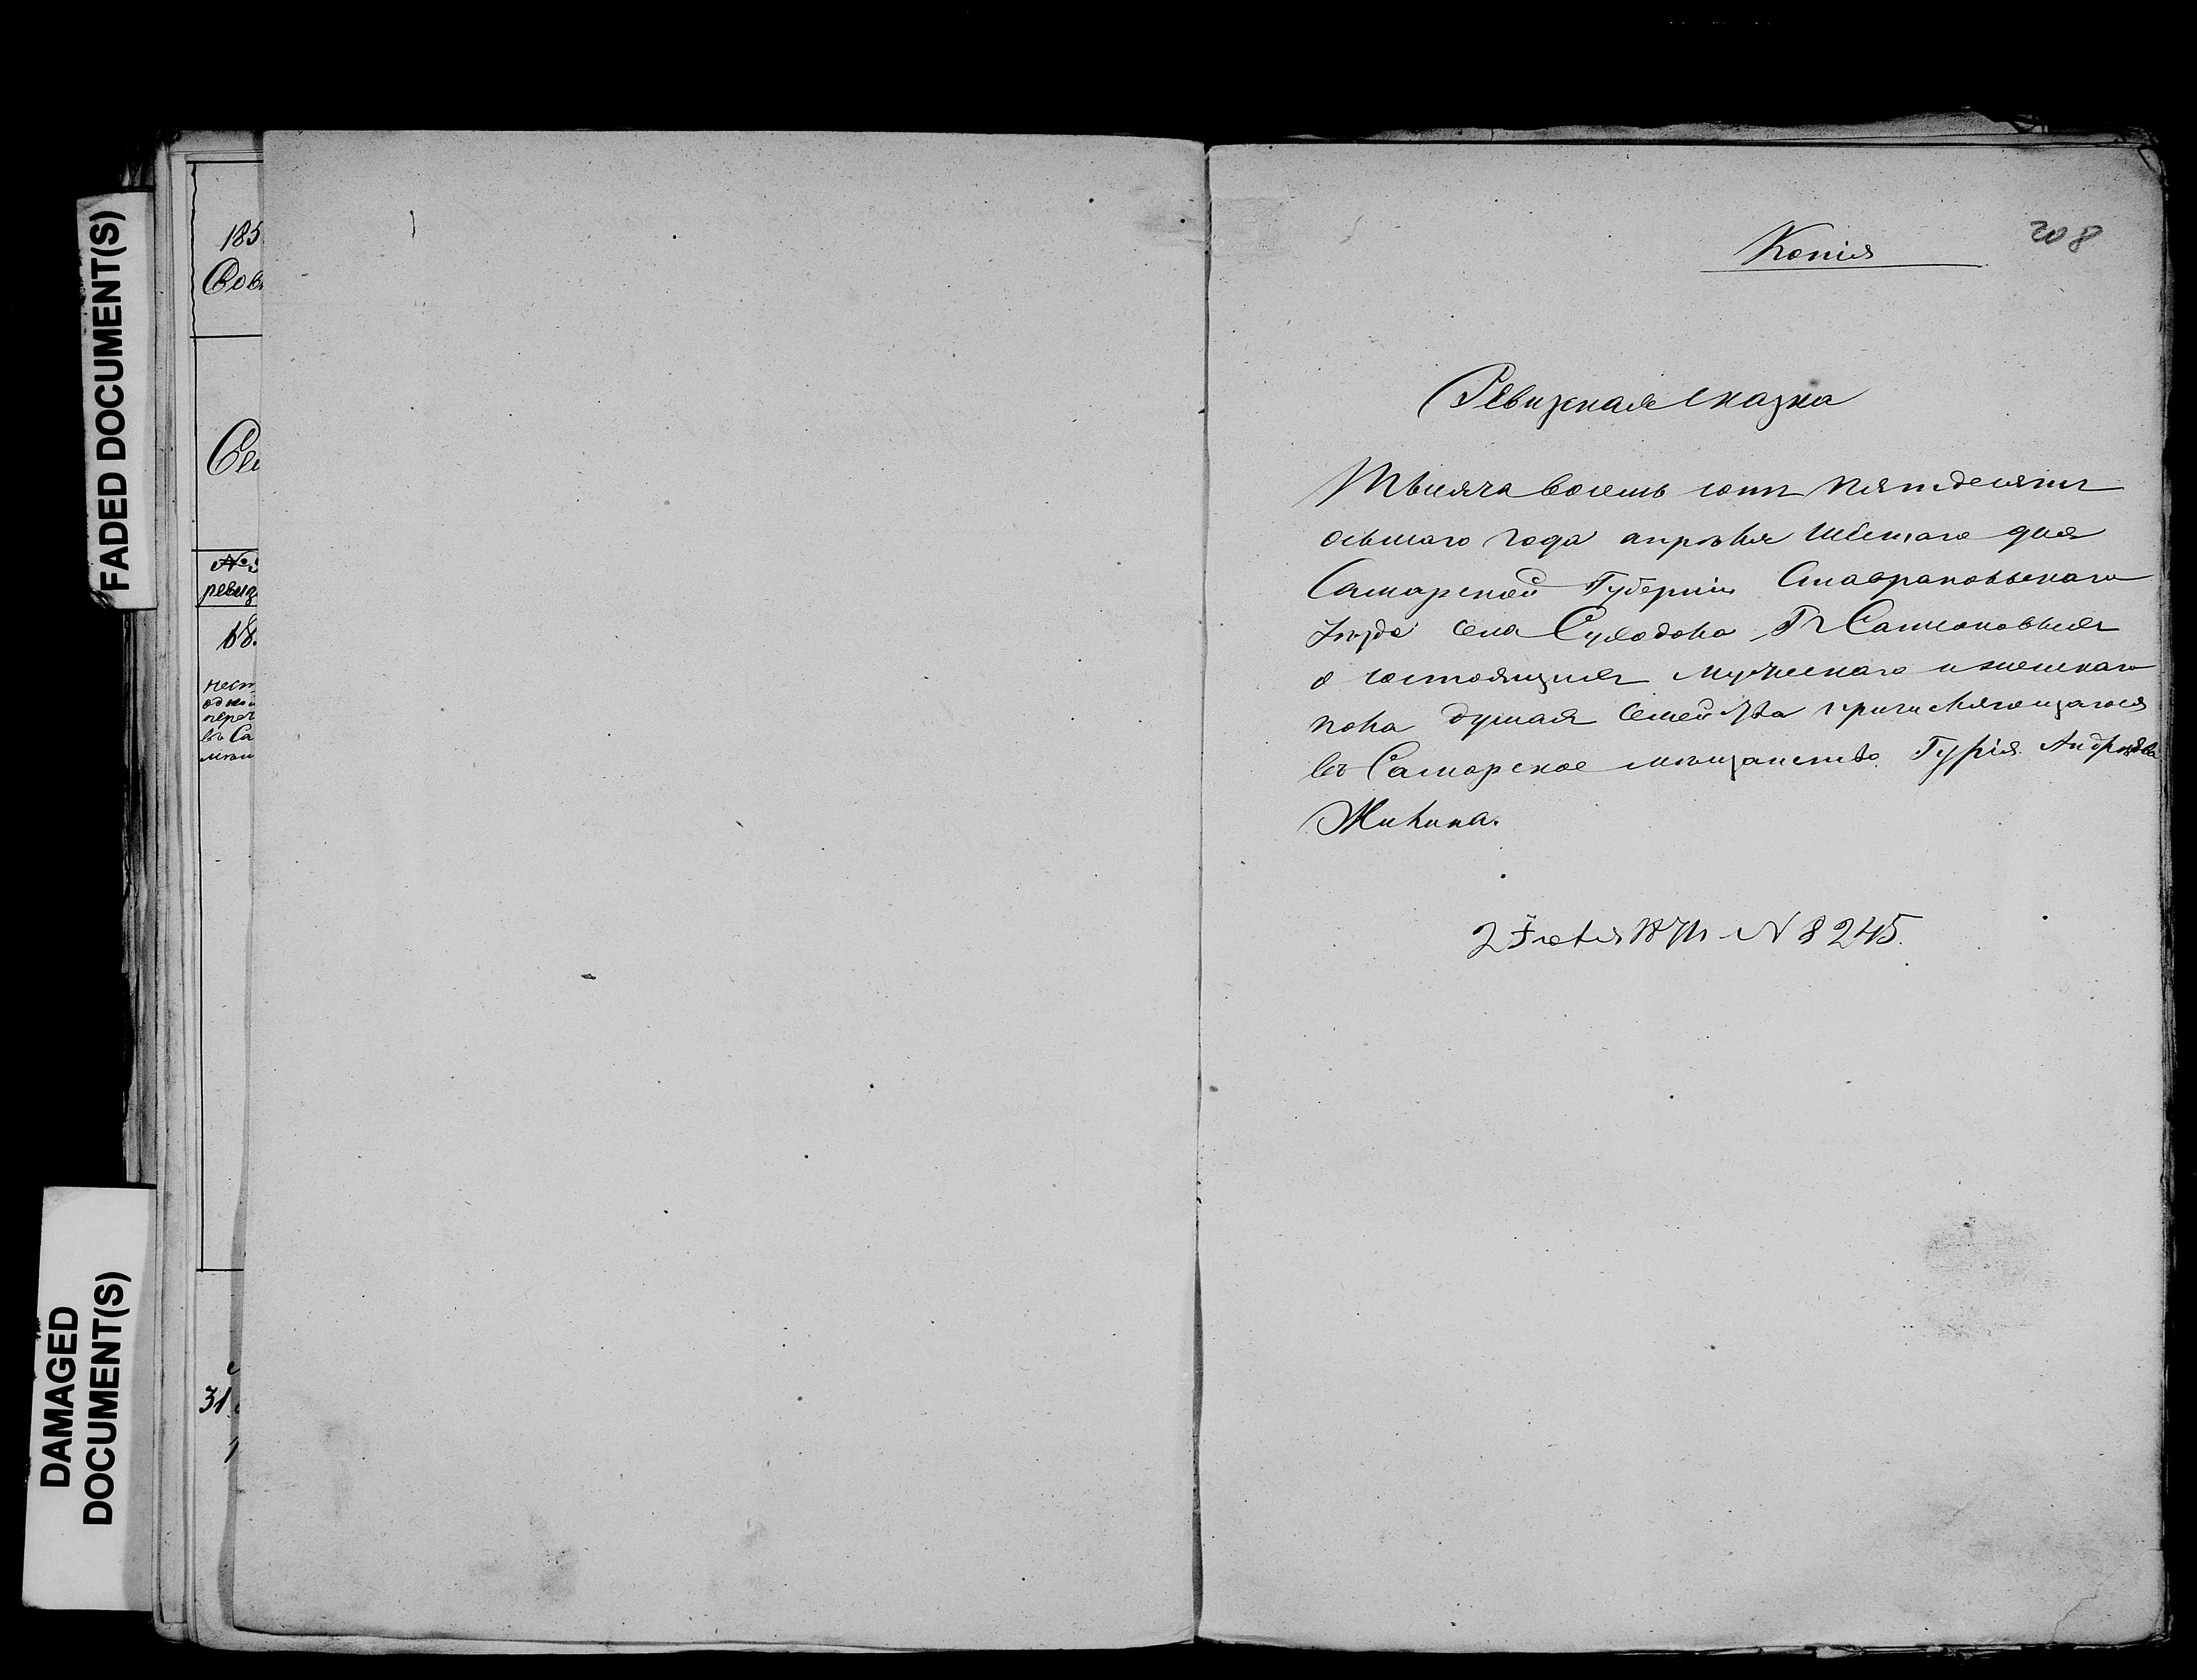 FADED DOCUMENT(S)
DAMAGED
DOCUMENT(S)
185
Сем
№
ревиз
въ Са
31
Копія
208
Ревизская сказка
Тысяча восемь сотъ пятдесятъ
осьмаго года апрѣля шестаго дня
Самарской Губерніи Ставрапольскаго
уѣзда села Суходола Гг
о состоящихъ мужескаго и женскаго
пола душахъ семейства причисляющагося
въ Самарское мѣщанство Гурія Андреева
Жилина.
2 Іюля 1871 N 8245.